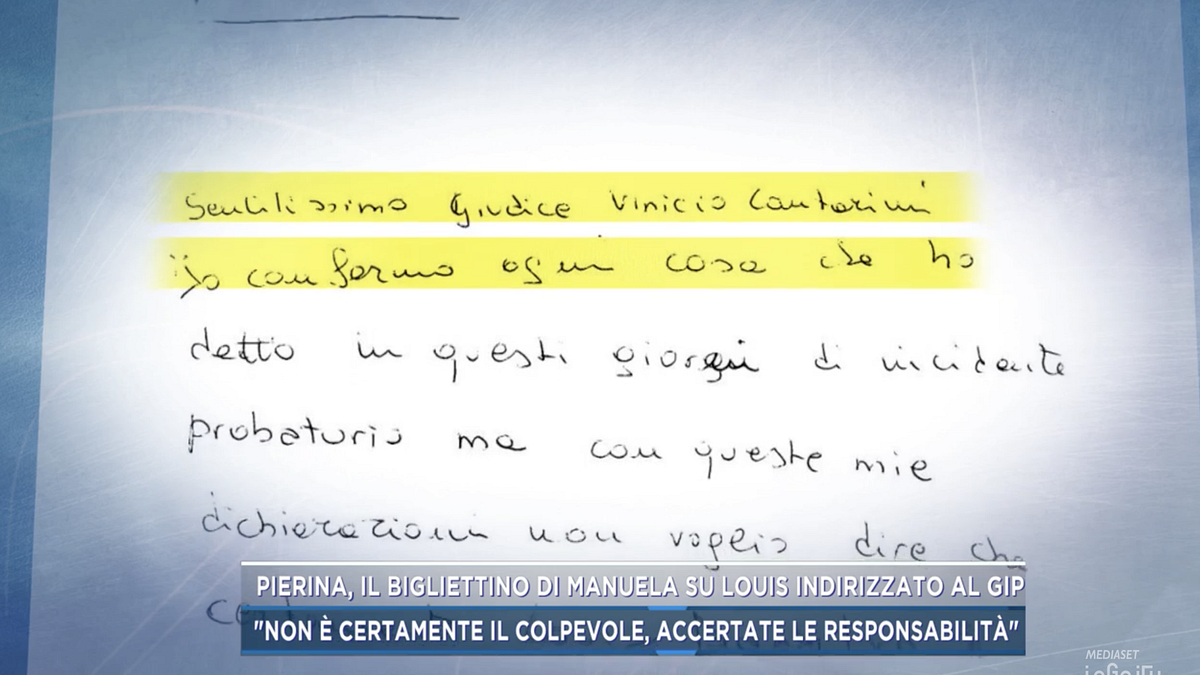 Gentilissimo Giudice Vinicio Cantarini
Io confermo ogni cosa che ho
detto in questi giorni di incidente
probatorio ma con queste mie
dichiarazioni non voglio dire che
PIERINA, IL BIGLIETTINO DI MANUELA SU LOUIS INDIRIZZATO AL GIP
"NON È CERTAMENTE IL COLPEVOLE, ACCERTATE LE RESPONSABILITÀ"
MEDIASET